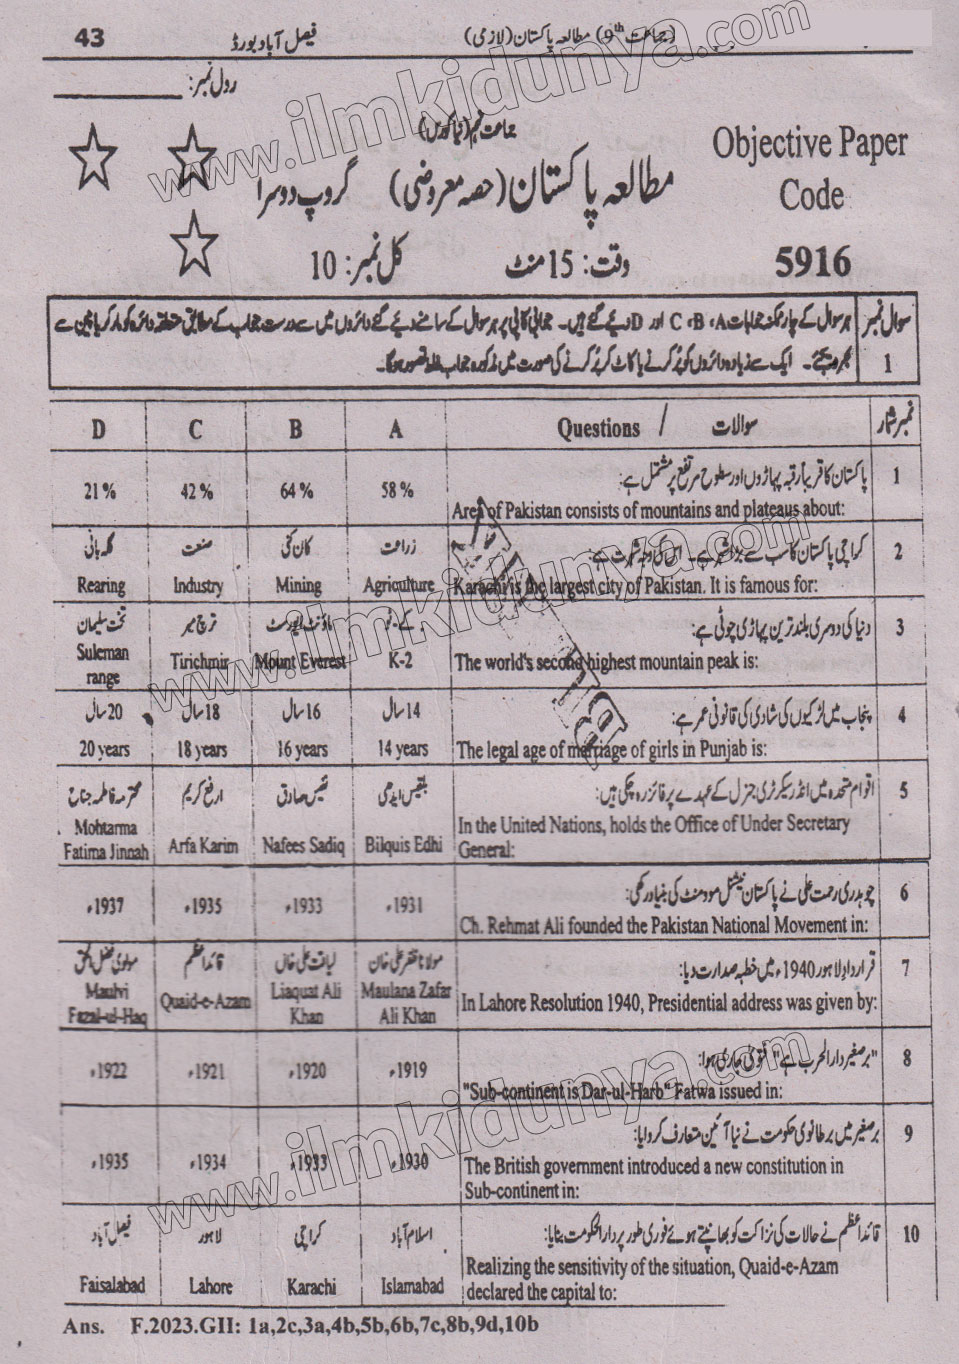 43 فیصل آباد بورڈ (جماعت 9th) مطالعہ پاکستان (لازمی)
رول نمبر:
جماعت نہم (نیا کورس)
مطالعہ پاکستان (حصہ معروضی) گروپ دوسرا
Objective Paper
Code
5916
وقت: 15 منٹ
کل نمبر: 10
سوال نمبر 1
ہر سوال کے چار ممکنہ جوابات A، B، C اور D دیئے گئے ہیں۔ جوابی کاپی پر ہر سوال کے سامنے دیئے گئے دائروں میں سے درست جواب کے مطابق متعلقہ دائرہ کو مارکر یا پین سے
بھر دیجئے۔ ایک سے زیادہ دائروں کو پُر کرنے یا کاٹ کر پُر کرنے کی صورت میں مذکورہ جواب غلط تصور ہوگا۔
نمبر شمار سوالات / Questions A B C D
1 پاکستان کا قریباً رقبہ پہاڑوں اور سطوح مرتفع پر مشتمل ہے:
Area of Pakistan consists of mountains and plateaus about:
58 % 64 % 42 % 21 %
2 کراچی پاکستان کا سب سے بڑا شہر ہے۔ اس کی وجہ شہرت ہے:
Karachi is the largest city of Pakistan. It is famous for:
زراعت کان کنی صنعت گلہ بانی
Agriculture Mining Industry Rearing
3 دنیا کی دوسری بلند ترین پہاڑی چوٹی ہے:
The world's second highest mountain peak is:
کے-ٹو ماؤنٹ ایورسٹ ترچ میر تخت سلیمان
K-2 Mount Everest Tirichmir Suleman range
4 پنجاب میں لڑکیوں کی شادی کی قانونی عمر ہے:
The legal age of marriage of girls in Punjab is:
14 سال 16 سال 18 سال 20 سال
14 years 16 years 18 years 20 years
5 اقوام متحدہ میں انڈر سیکرٹری جنرل کے عہدے پر فائز رہ چکی ہیں:
In the United Nations, holds the Office of Under Secretary
General:
بلقیس ایدھی نفیس صادق ارفع کریم محترمہ فاطمہ جناح
Bilquis Edhi Nafees Sadiq Arfa Karim Mohtarma Fatima Jinnah
6 چوہدری رحمت علی نے پاکستان نیشنل موومنٹ کی بنیاد رکھی:
Ch. Rehmat Ali founded the Pakistan National Movement in:
1931ء 1933ء 1935ء 1937ء
7 قرارداد لاہور 1940ء میں خطبہ صدارت دیا:
In Lahore Resolution 1940, Presidential address was given by:
مولانا ظفر علی خان لیاقت علی خاں قائداعظم مولوی فضل الحق
Maulana Zafar Ali Khan Liaquat Ali Khan Quaid-e-Azam Maulvi Fazal-ul-Haq
8 "برصغیر دارالحرب ہے" فتویٰ جاری ہوا:
"Sub-continent is Dar-ul-Harb" Fatwa issued in:
1919ء 1920ء 1921ء 1922ء
9 برصغیر میں برطانوی حکومت نے نیا آئین متعارف کروایا:
The British government introduced a new constitution in
Sub-continent in:
1930ء 1933ء 1934ء 1935ء
10 قائداعظم نے حالات کی نزاکت کو بھانپتے ہوئے فوری طور پر دارالحکومت بنایا:
Realizing the sensitivity of the situation, Quaid-e-Azam
declared the capital to:
اسلام آباد کراچی لاہور فیصل آباد
Islamabad Karachi Lahore Faisalabad
Ans. F.2023.GII: 1a,2c,3a,4b,5b,6b,7c,8b,9d,10b
www.ilmkidunya.com
www.ilmkidunya.com
www.ilmkidunya.com